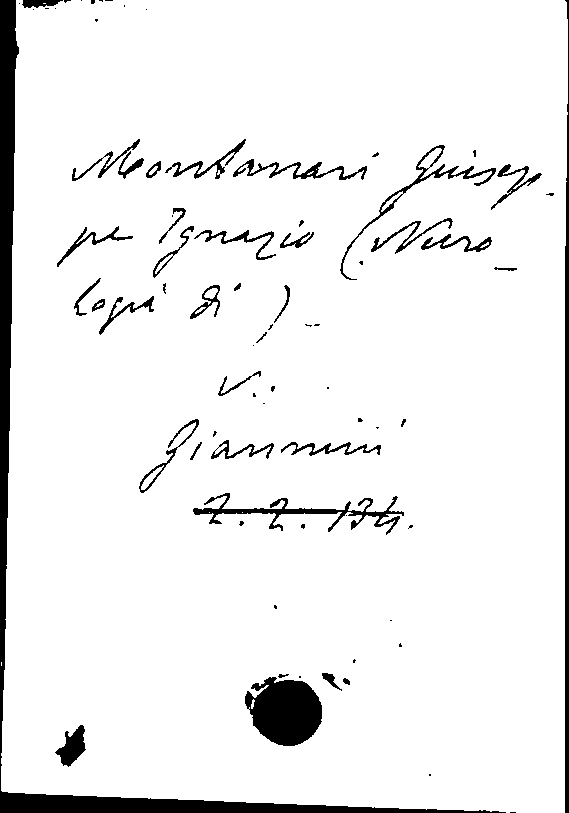 Montanari Giusep-
pe Ignazio (Necro_
logia di)_
V.:
Giannini
2. 2. 134.